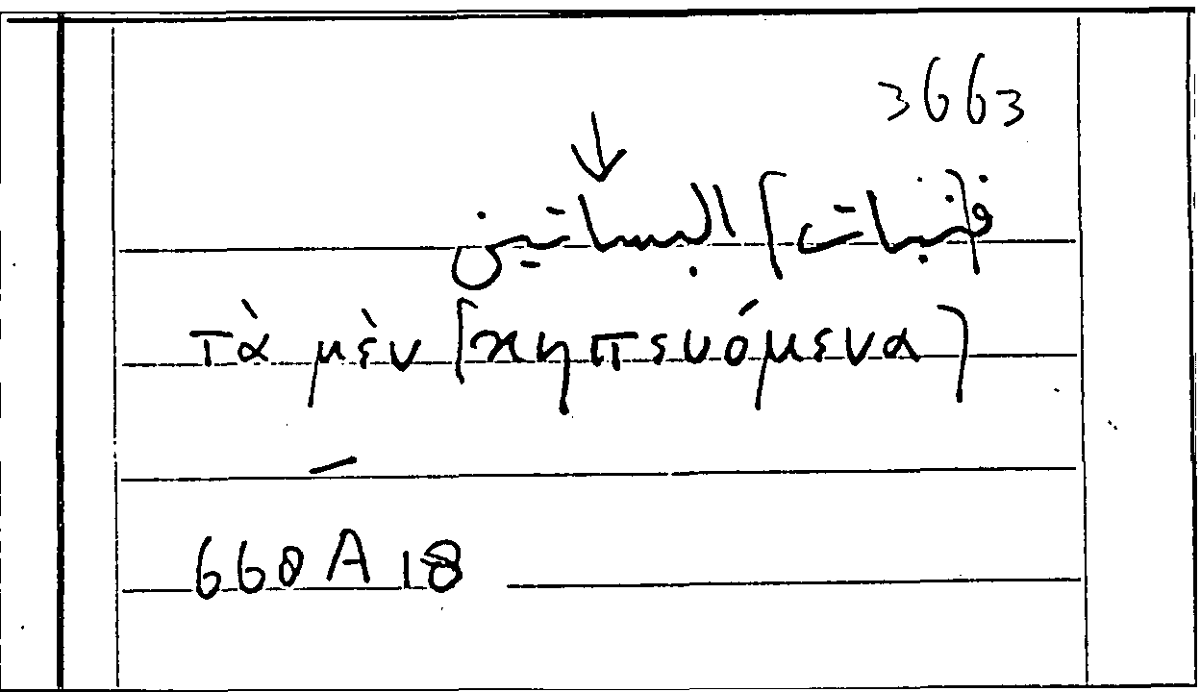 3663
↓
فنبات [البساتين
τὰ μὲν [κηπευόμενα]
668 A 18